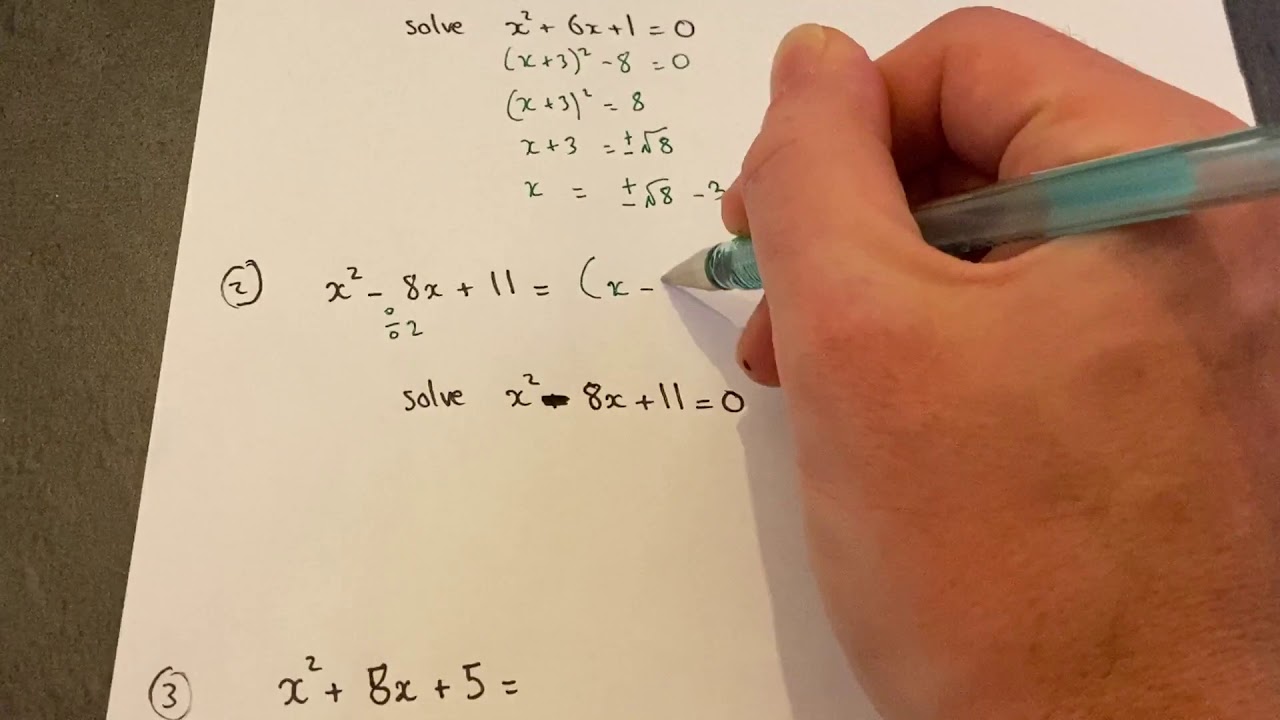 solve x² + 6x + 1 = 0
(x + 3)² - 8 = 0
(x + 3)² = 8
x + 3 = ±√8
x = ±√8 - 3
② x² - 8x + 11 = (x -
÷2
solve x² - 8x + 11 = 0
③ x² + 8x + 5 =